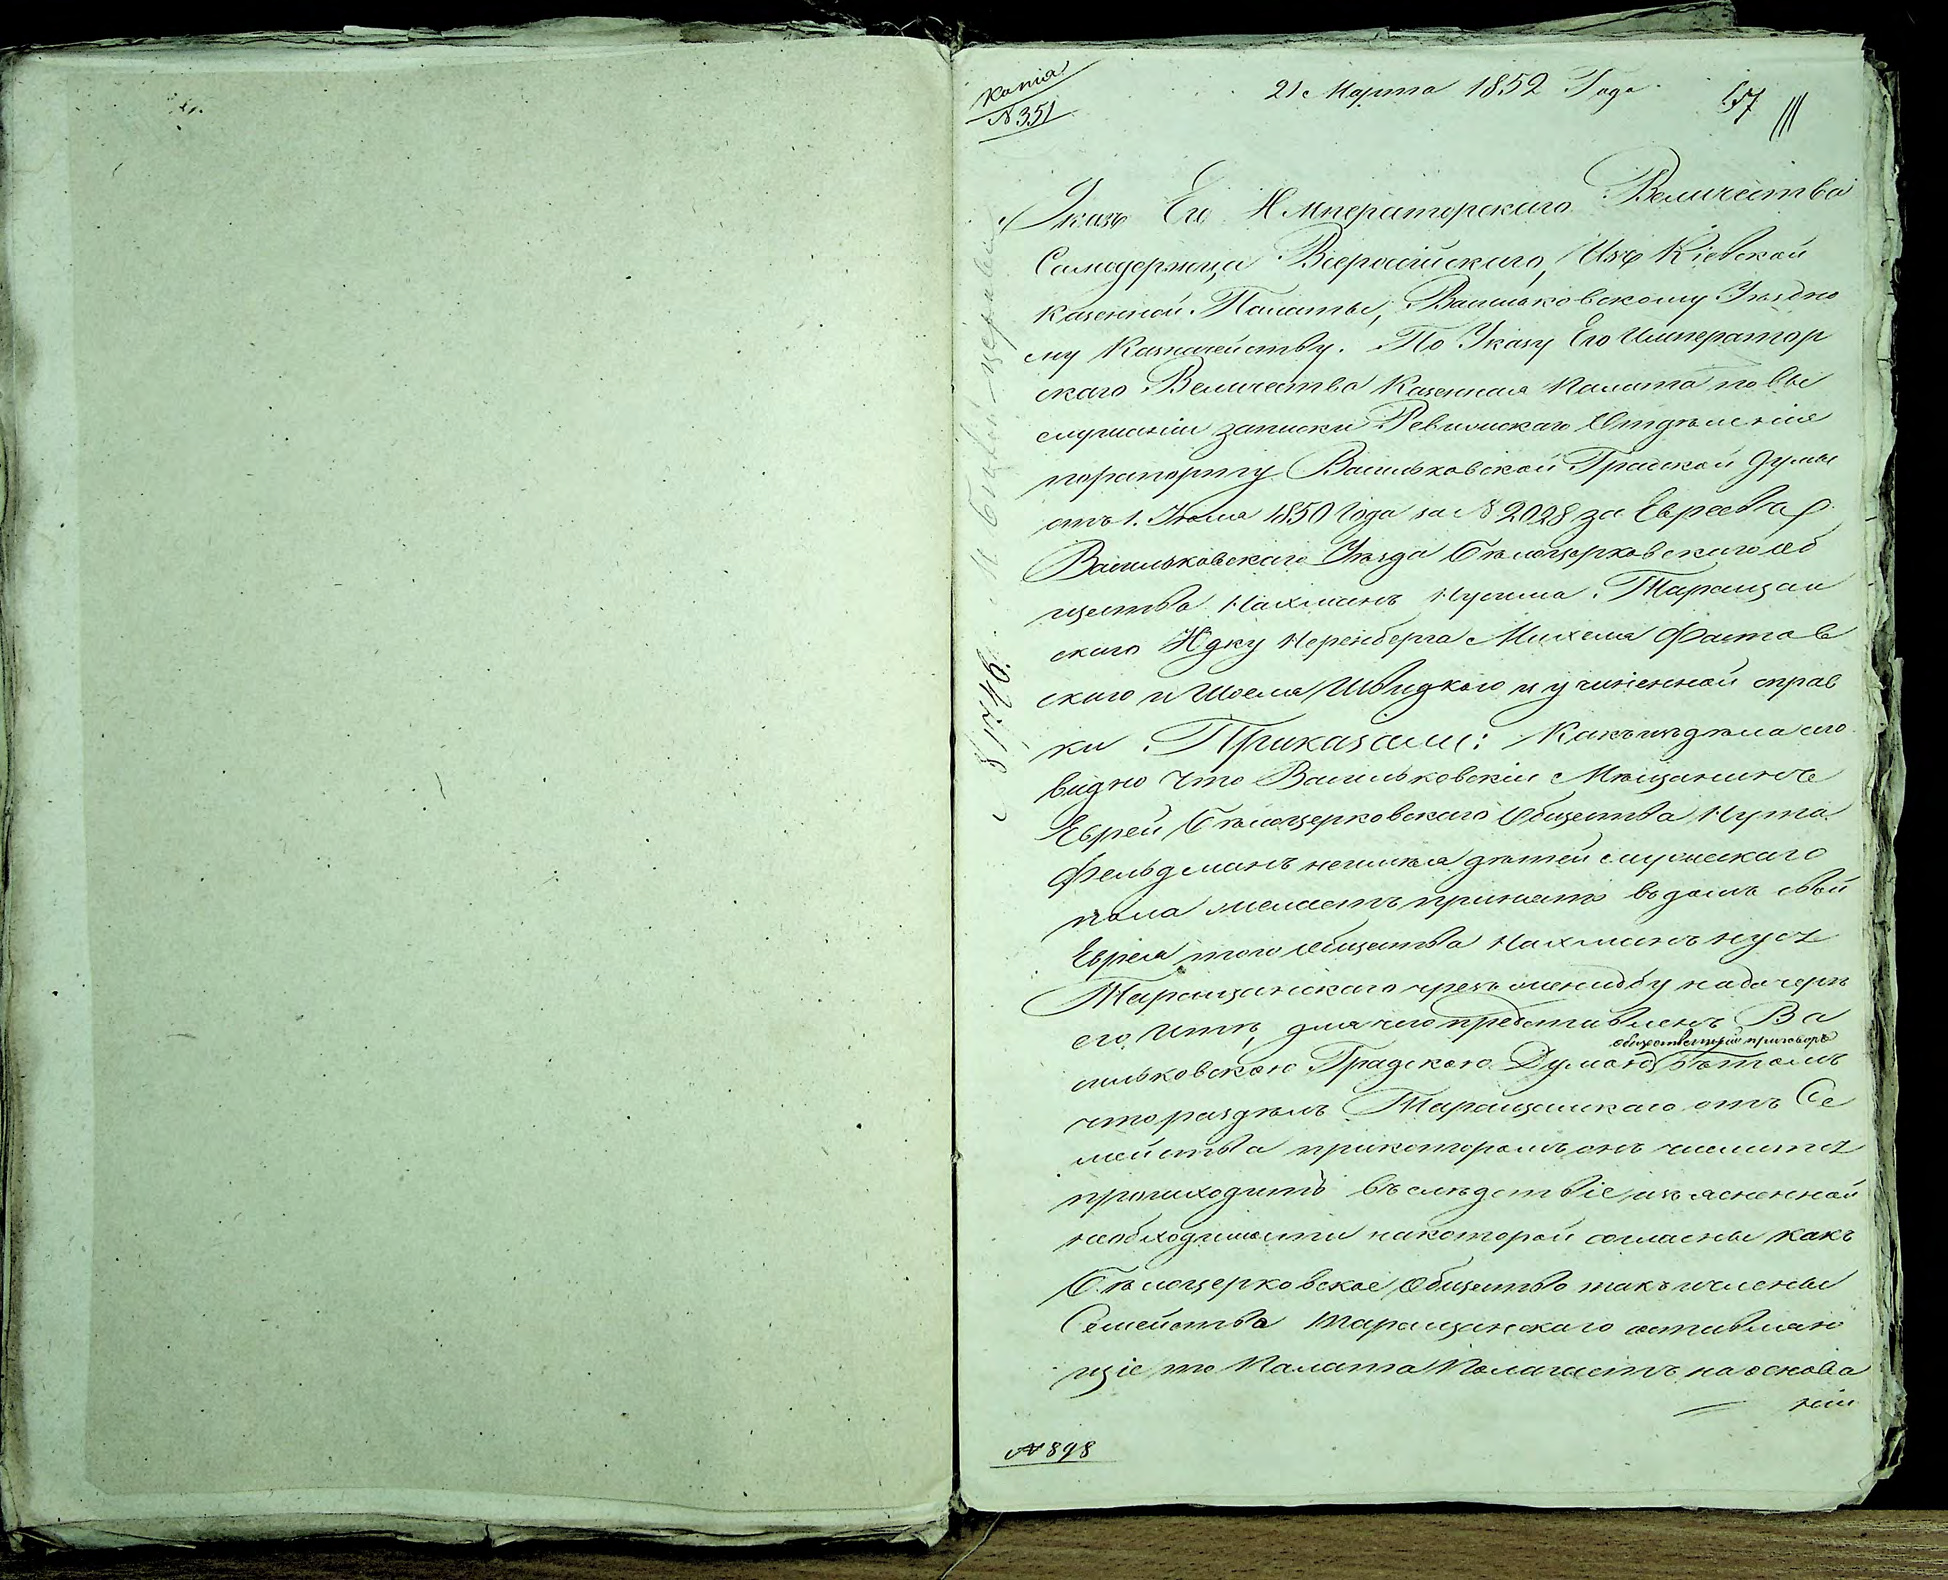 Копія
№ 351
21 Марта 1852 Года.
57
Указъ Его Императорскаго Величества
Самодержца Всероссійскаго, Изъ Кіевской
Казенной Палаты, Васильковскому Уездно
му Казначейству. По Указу Его Император
скаго Величества Казенная Палата по вы
слушаніи записки Ревизскаго Отделенія
порапорту Васильковской Градской Думы
отъ 1. Іюля 1850 Года за № 2028 за Евреевъ
Васильковскаго Уезда Белоцерковскаго об
щества Нахманъ Нусима Таращан
скаго Неренберга Михеля Фастов
скаго и Иоселя Швидкаго и учиненной справ
ки. Приказали: Какъ изъ дела сего
видно что Васильковскій Мещанинъ
Еврей Белоцерковскаго Общества Нута
Фельдманъ неимея детей мужескаго
пола желаетъ принять въ домъ свой
Еврея того общества Нахманъ Нуся
Таращанскаго чрезъ женидбу на дочери
его Ите, для чего представленъ Ва
общественный приговоръ
сильковскою Градскою Думою въ томъ
что разделъ Таращанскаго отъ Се
мейства прикоторомъ онъ числится
происходитъ въ следствіе изъясненной
необходимости накоторой согласны какъ
Белоцерковское Общество такъ и члены
Семейства Таращанскаго оставляю
щіе то Палата Полагаетъ на основа
ніи
№ 898